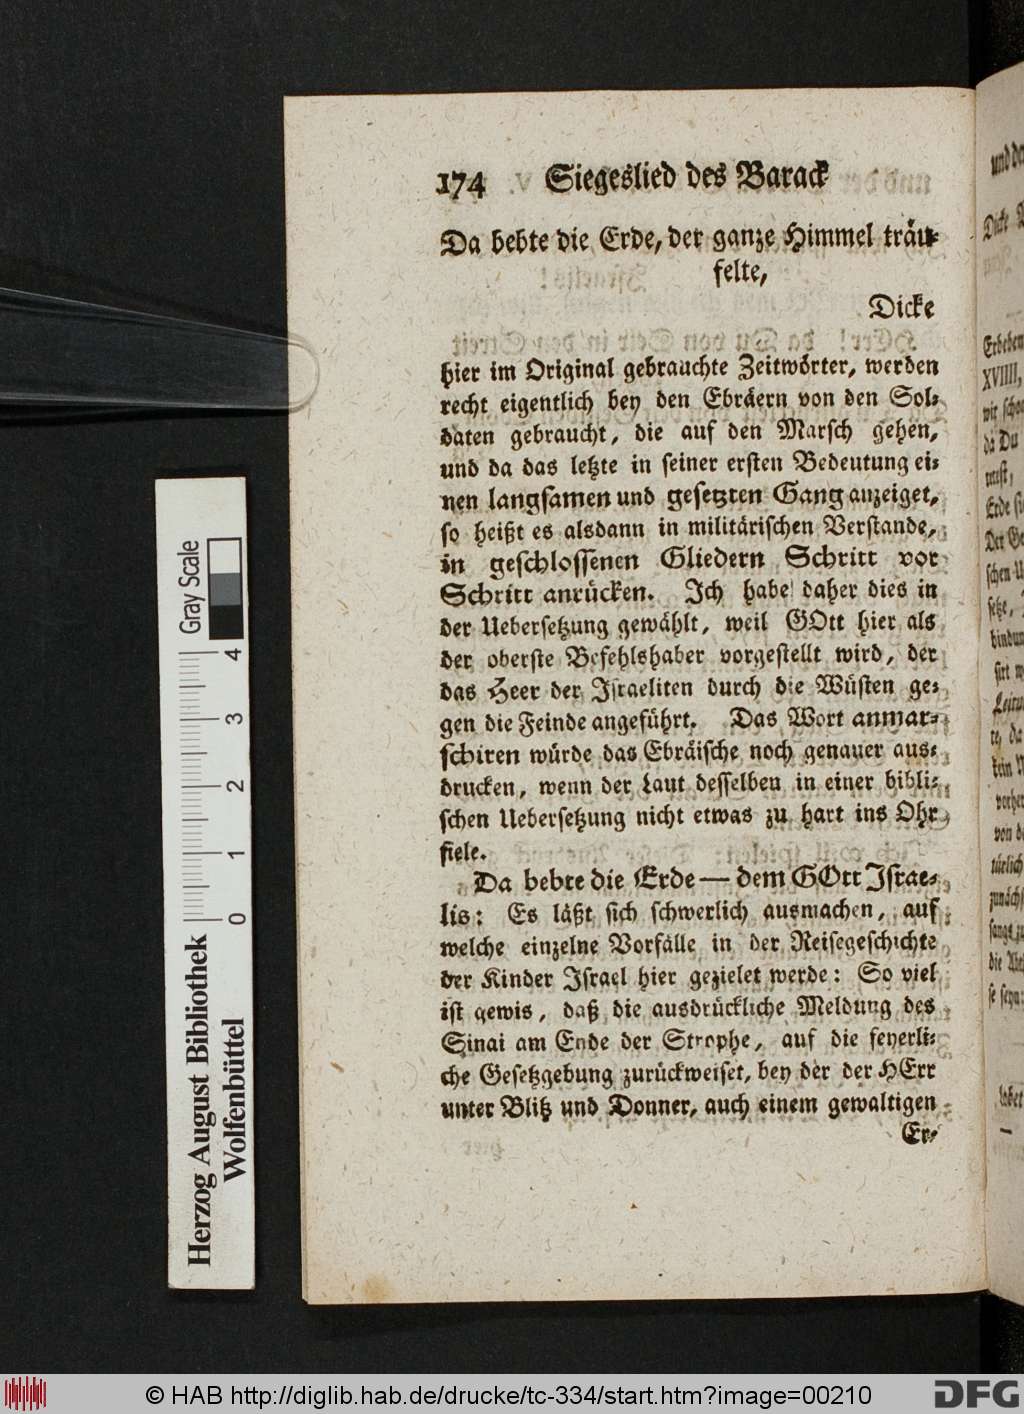 174 Siegeslied des Barack
Da bebte die Erde, der ganze Himmel träu-
felte,
Dicke
hier im Original gebrauchte Zeitwörter, werden
recht eigentlich bey den Ebräern von den Sol-
daten gebraucht, die auf den Marsch gehen,
und da das letzte in seiner ersten Bedeutung ei-
nen langsamen und gesetzten Gang anzeiget,
so heißt es alsdann in militärischen Verstande,
in geschlossenen Gliedern Schritt vor
Schritt anrücken. Ich habe daher dies in
der Uebersetzung gewählt, weil GOtt hier als
der oberste Befehlshaber vorgestellt wird, der
das Heer der Israeliten durch die Wüsten ge-
gen die Feinde angeführt. Das Wort anmar-
schiren würde das Ebräische noch genauer aus-
drucken, wenn der Laut desselben in einer bibli-
schen Uebersetzung nicht etwas zu hart ins Ohr
fiele.
Da bebte die Erde — dem GOtt Israe-
lis: Es läßt sich schwerlich ausmachen, auf
welche einzelne Vorfälle in der Reisegeschichte
der Kinder Israel hier gezielet werde: So viel
ist gewis, daß die ausdrückliche Meldung des
Sinai am Ende der Strophe, auf die feyerli-
che Gesetzgebung zurückweiset, bey der der HErr
unter Blitz und Donner, auch einem gewaltigen
Er-
Gray Scale
0 1 2 3 4
Herzog August Bibliothek
Wolfenbüttel
© HAB http://diglib.hab.de/drucke/tc-334/start.htm?image=00210
DFG